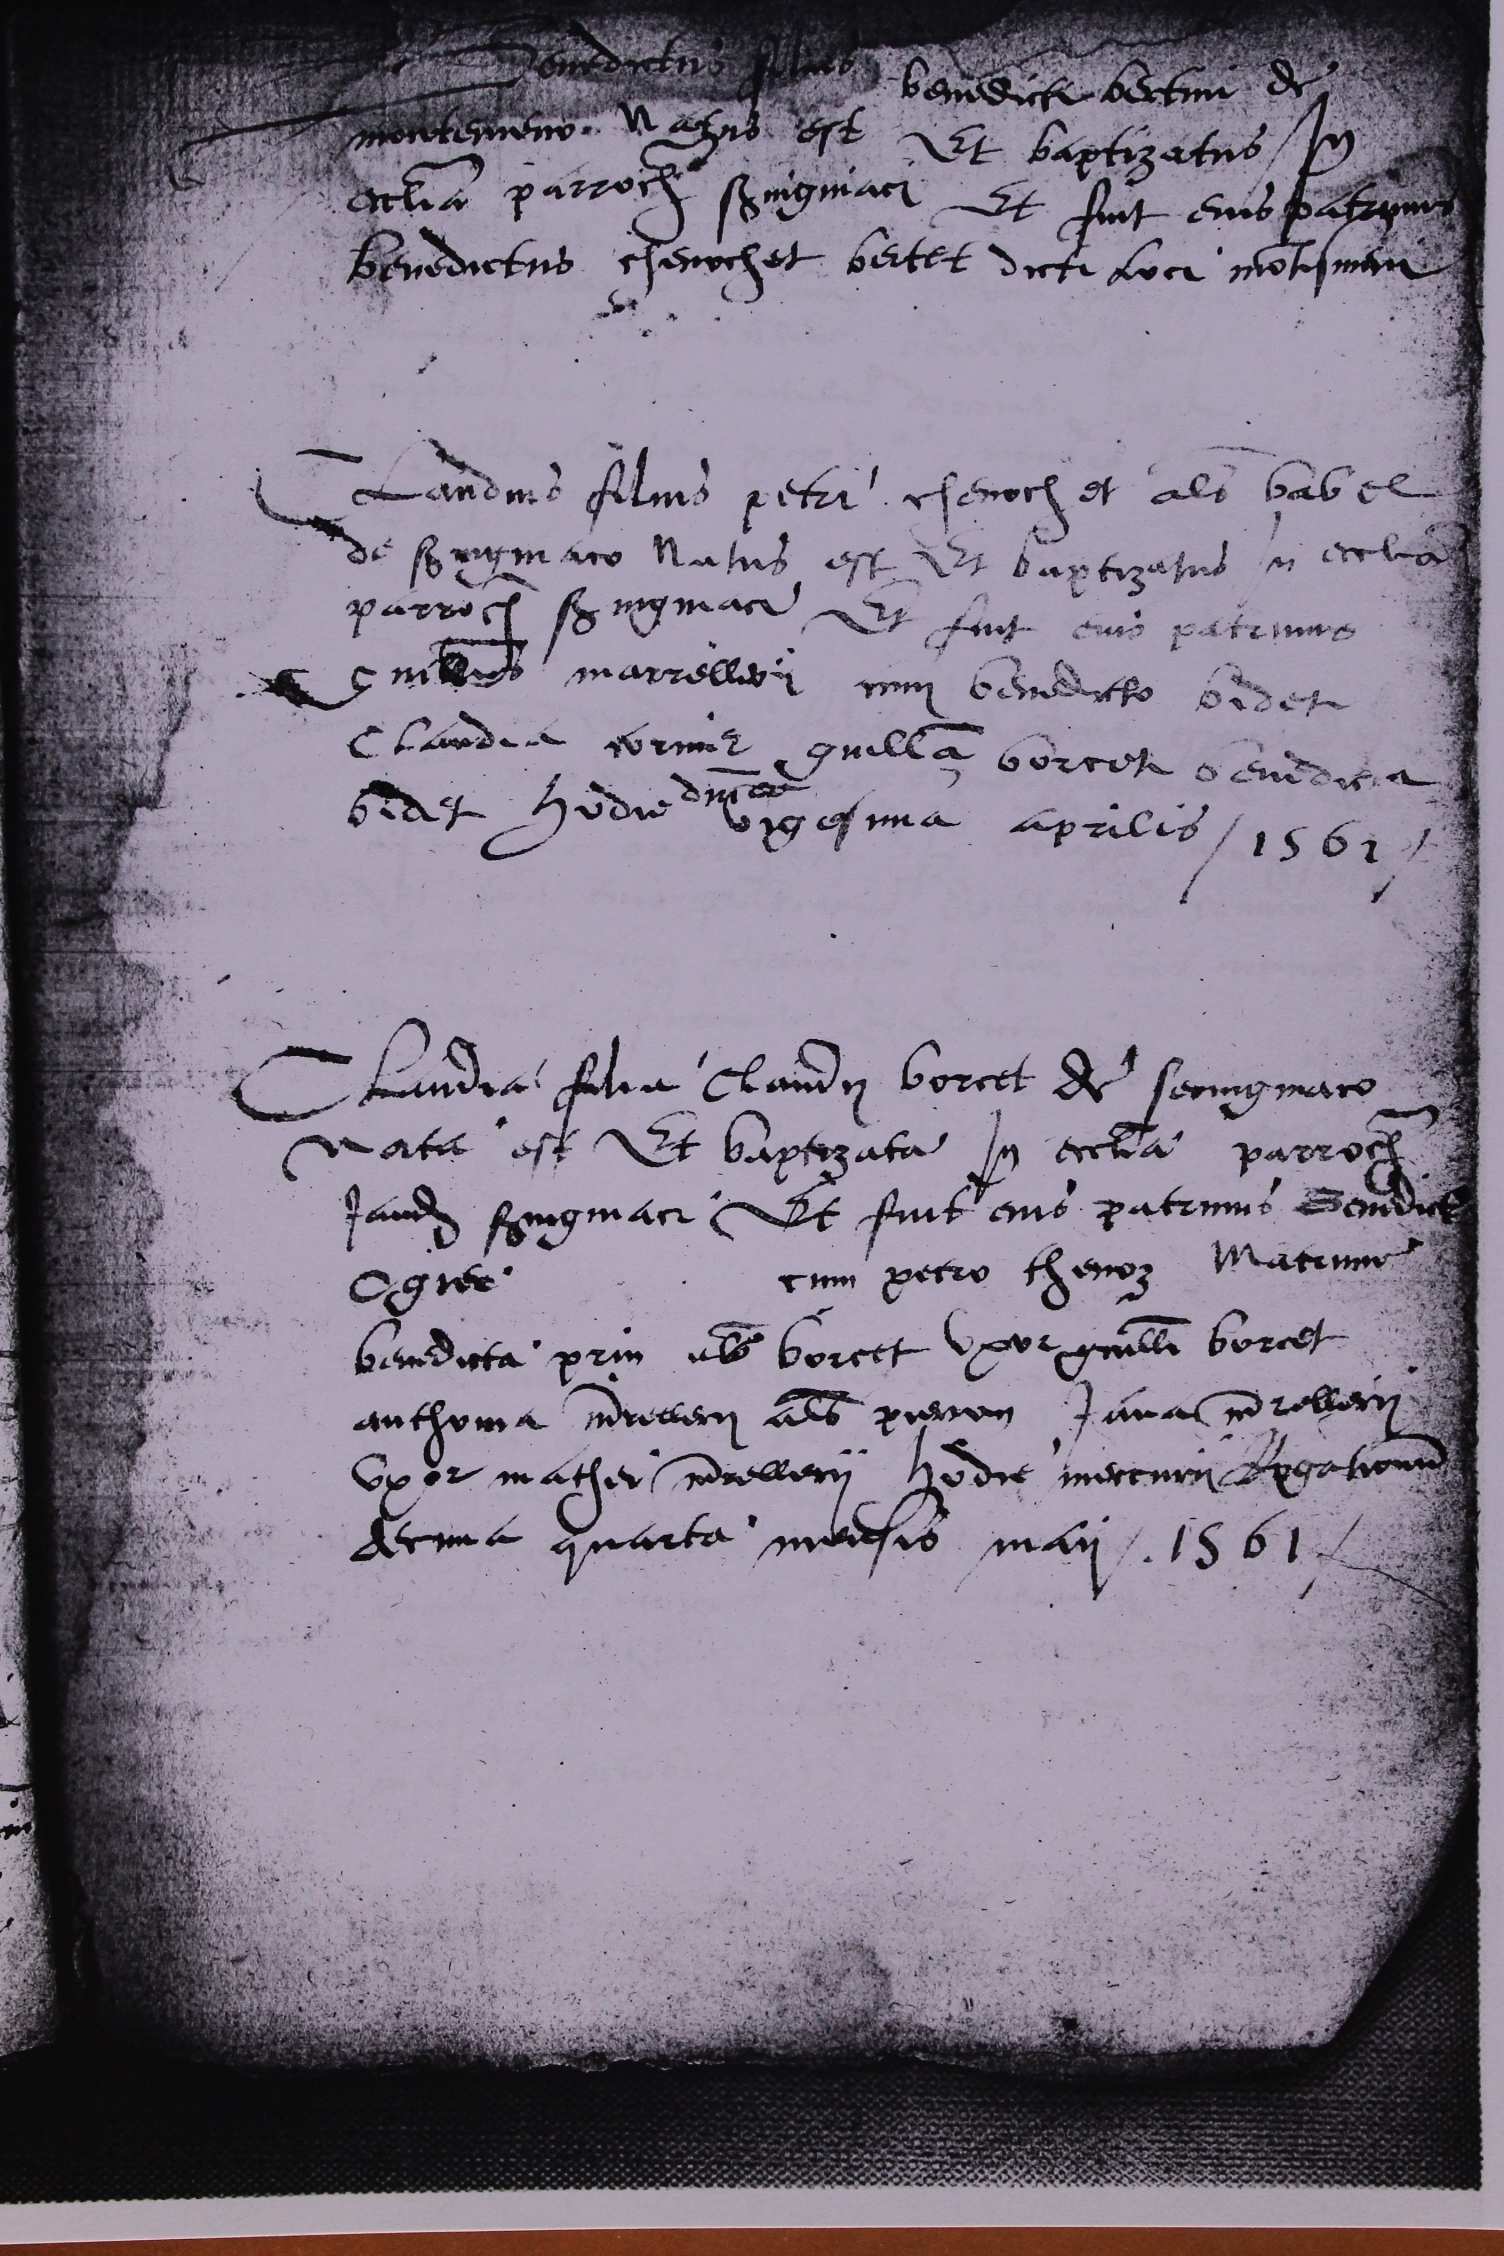 Benedictus filius benedicti bertini de
montemeno Natus est Et baptizatus In
ecclia parroch seringniaci Et fuit eius patrinus
benedictus chenochet bertet dicti loci
Claudius filius petri chenochet als babel
de seringniaco Natus est Et baptizatus In ecclia
parroch seringniaci Et fuit eius patrinus
guillms marrellerii cum benedicto bidet
Claudia guilla borcet benedicta
bidet hodie dnica vigesima aprilis / 1561 /
Claudia filia Claudii borcet de seringniaco
Nata est Et baptizata In ecclia parroch
seringniaci Et fuit eius patrinus Benedict
Ogier cum petro thenoz Matrine
benedicta prin als borcet vxor guilli borcet
anthonia mrellerii als pierron Jana mrellerii
vxor mathei mrellerii hodie mercurii Rogationum
decima quarta mensis maii / . 1561 /